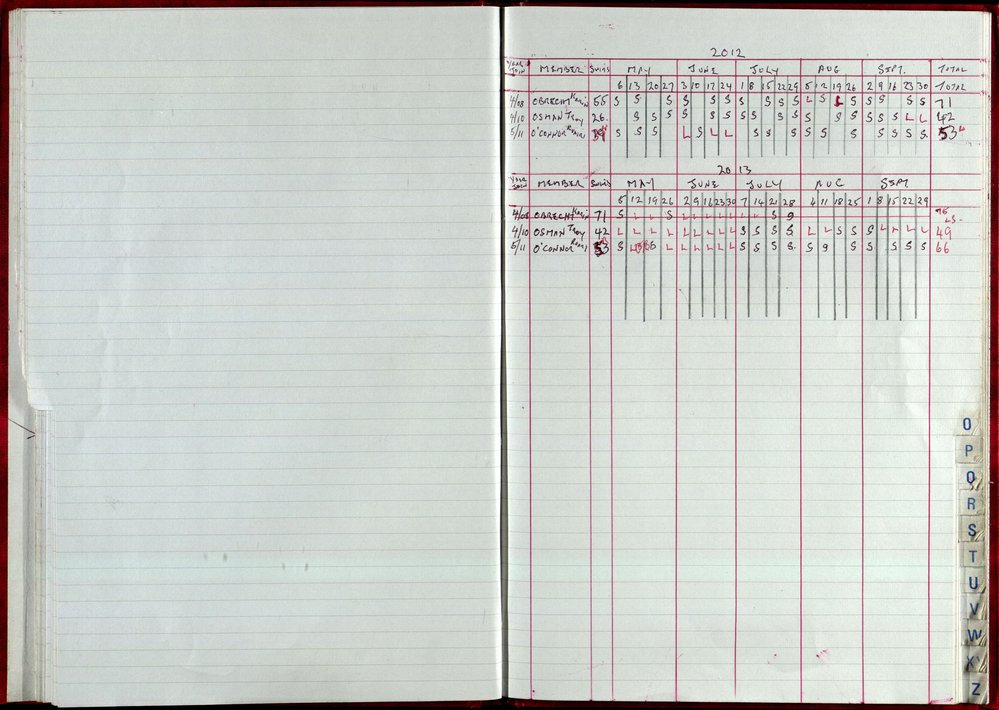 2012
YEAR JOIN MEMBER SWIMS MAY JUNE JULY AUG SEPT. TOTAL
6 13 20 27 3 10 17 24 1 8 15 22 29 5 12 19 26 2 9 16 23 30 TOTAL
4/08 OBRECHT 55 S S S S S S S S S S L S L S S S S S 71
4/10 OSMAN Troy 26 S S S S S S S S S S S S S S S S S L L 42
5/11 O'CONNOR S S S L S L L S S S S S S S S S S 53
2013
YEAR JOIN MEMBER SWIMS MAY JUNE JULY AUG SEPT
5 12 19 26 2 9 16 23 30 7 14 21 28 4 11 18 25 1 8 15 22 29
4/08 OBRECHT 71 S L L S L L L L L L L S
4/10 OSMAN Troy 42 L L L L L L L L L S S S S L L S S S L L L L 49
5/11 O'CONNOR 53 S L L L L L L S S S S S S S S S S 66
O
P
Q
R
S
T
U
V
W
X
Z